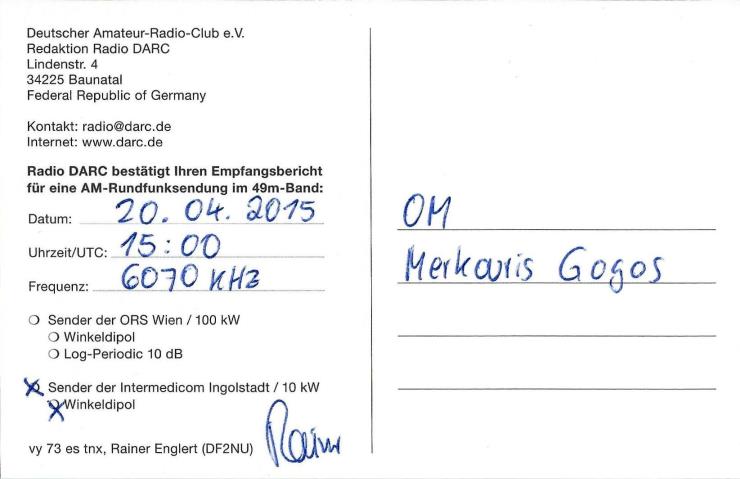 Deutscher Amateur-Radio-Club e.V.
Redaktion Radio DARC
Lindenstr. 4
34225 Baunatal
Federal Republic of Germany
Kontakt: radio@darc.de
Internet: www.darc.de
Radio DARC bestätigt Ihren Empfangsbericht
für eine AM-Rundfunksendung im 49m-Band:
Datum: 20. 04. 2015
Uhrzeit/UTC: 15:00
Frequenz: 6070 KHz
Sender der ORS Wien / 100 kW
Winkeldipol
Log-Periodic 10 dB
Sender der Intermedicom Ingolstadt / 10 kW
Winkeldipol
vy 73 es tnx, Rainer Englert (DF2NU)
OM
Merkouris Gogos